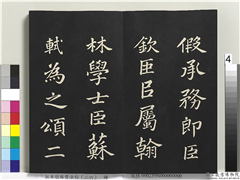 假承務郎臣
欽臣臣屬翰
林學士臣蘇
軾為之頌二
4